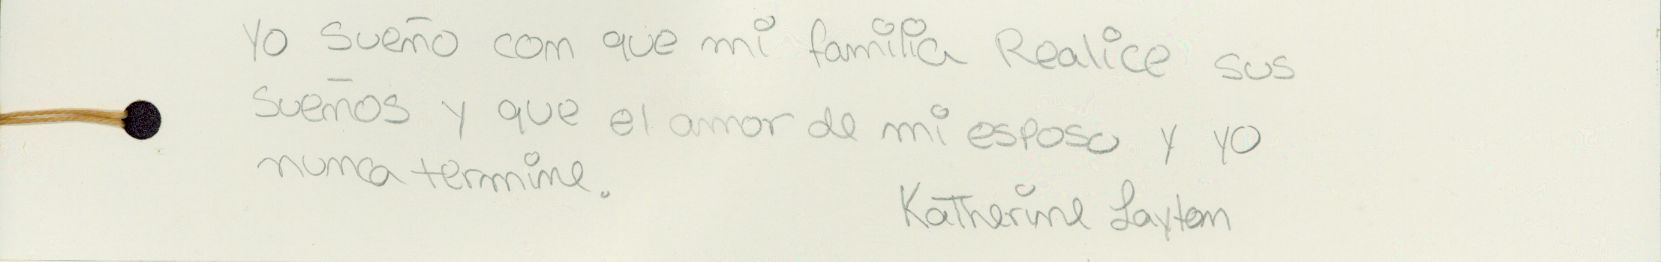 Yo sueño con que mi familia Realice sus
sueños y que el amor de mi esposo y yo
nunca termine.
Katherine Layton